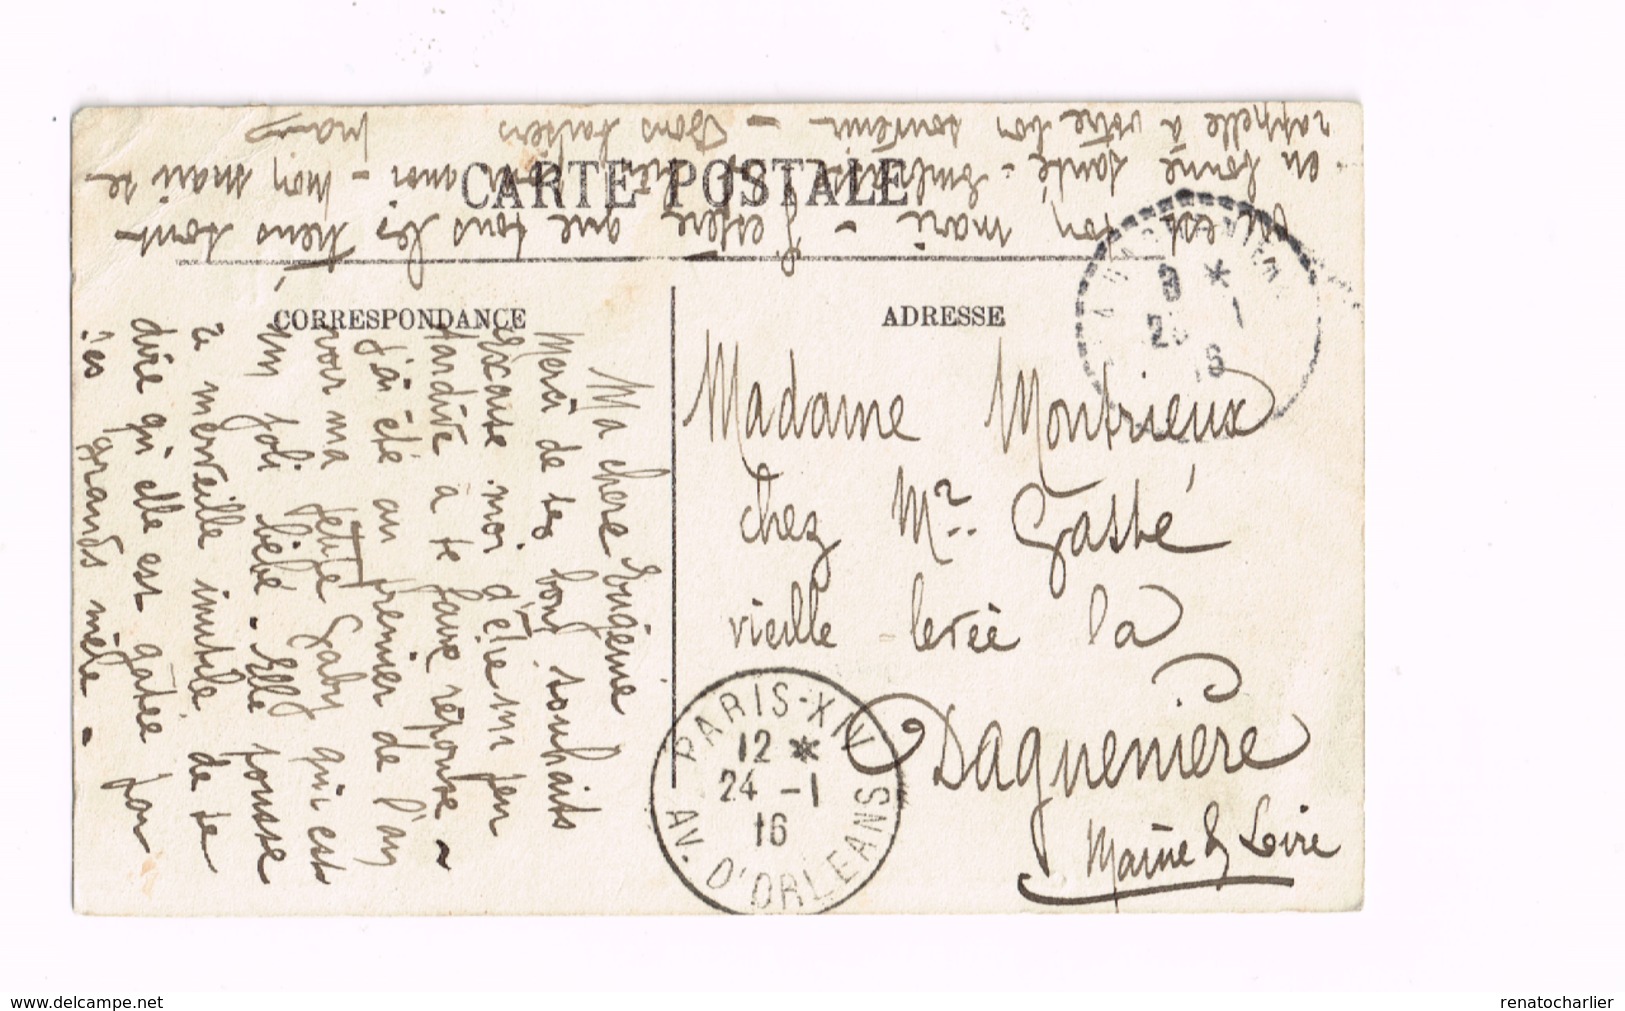 CARTE POSTALE
CORRESPONDANCE
ADRESSE
Ma chere Eugénie
Merci de tes bons souhaits
excuse moi d'être un peu
tardive à te faire réponse ~
j'ai été au premier de l'an
voir ma petite Gaby qui est
un joli bébé. Elle pousse
à merveille inutile de te
dire qu'elle est gâtée par
les grands mère -
est ton mari - J'espère que tous les tiens sont
en bonne santé - moi - Mon mari se
rappelle à votre bon souvenir - Bons baisers
Madame Montrieux
Chez Mr. Gasté
vieille levée la
Daguenière
Maine & Loire
PARIS-XIV
12 *
24 -1
16
AV. D'ORLEANS
8 *
-1
renatocharlier
www.delcampe.net